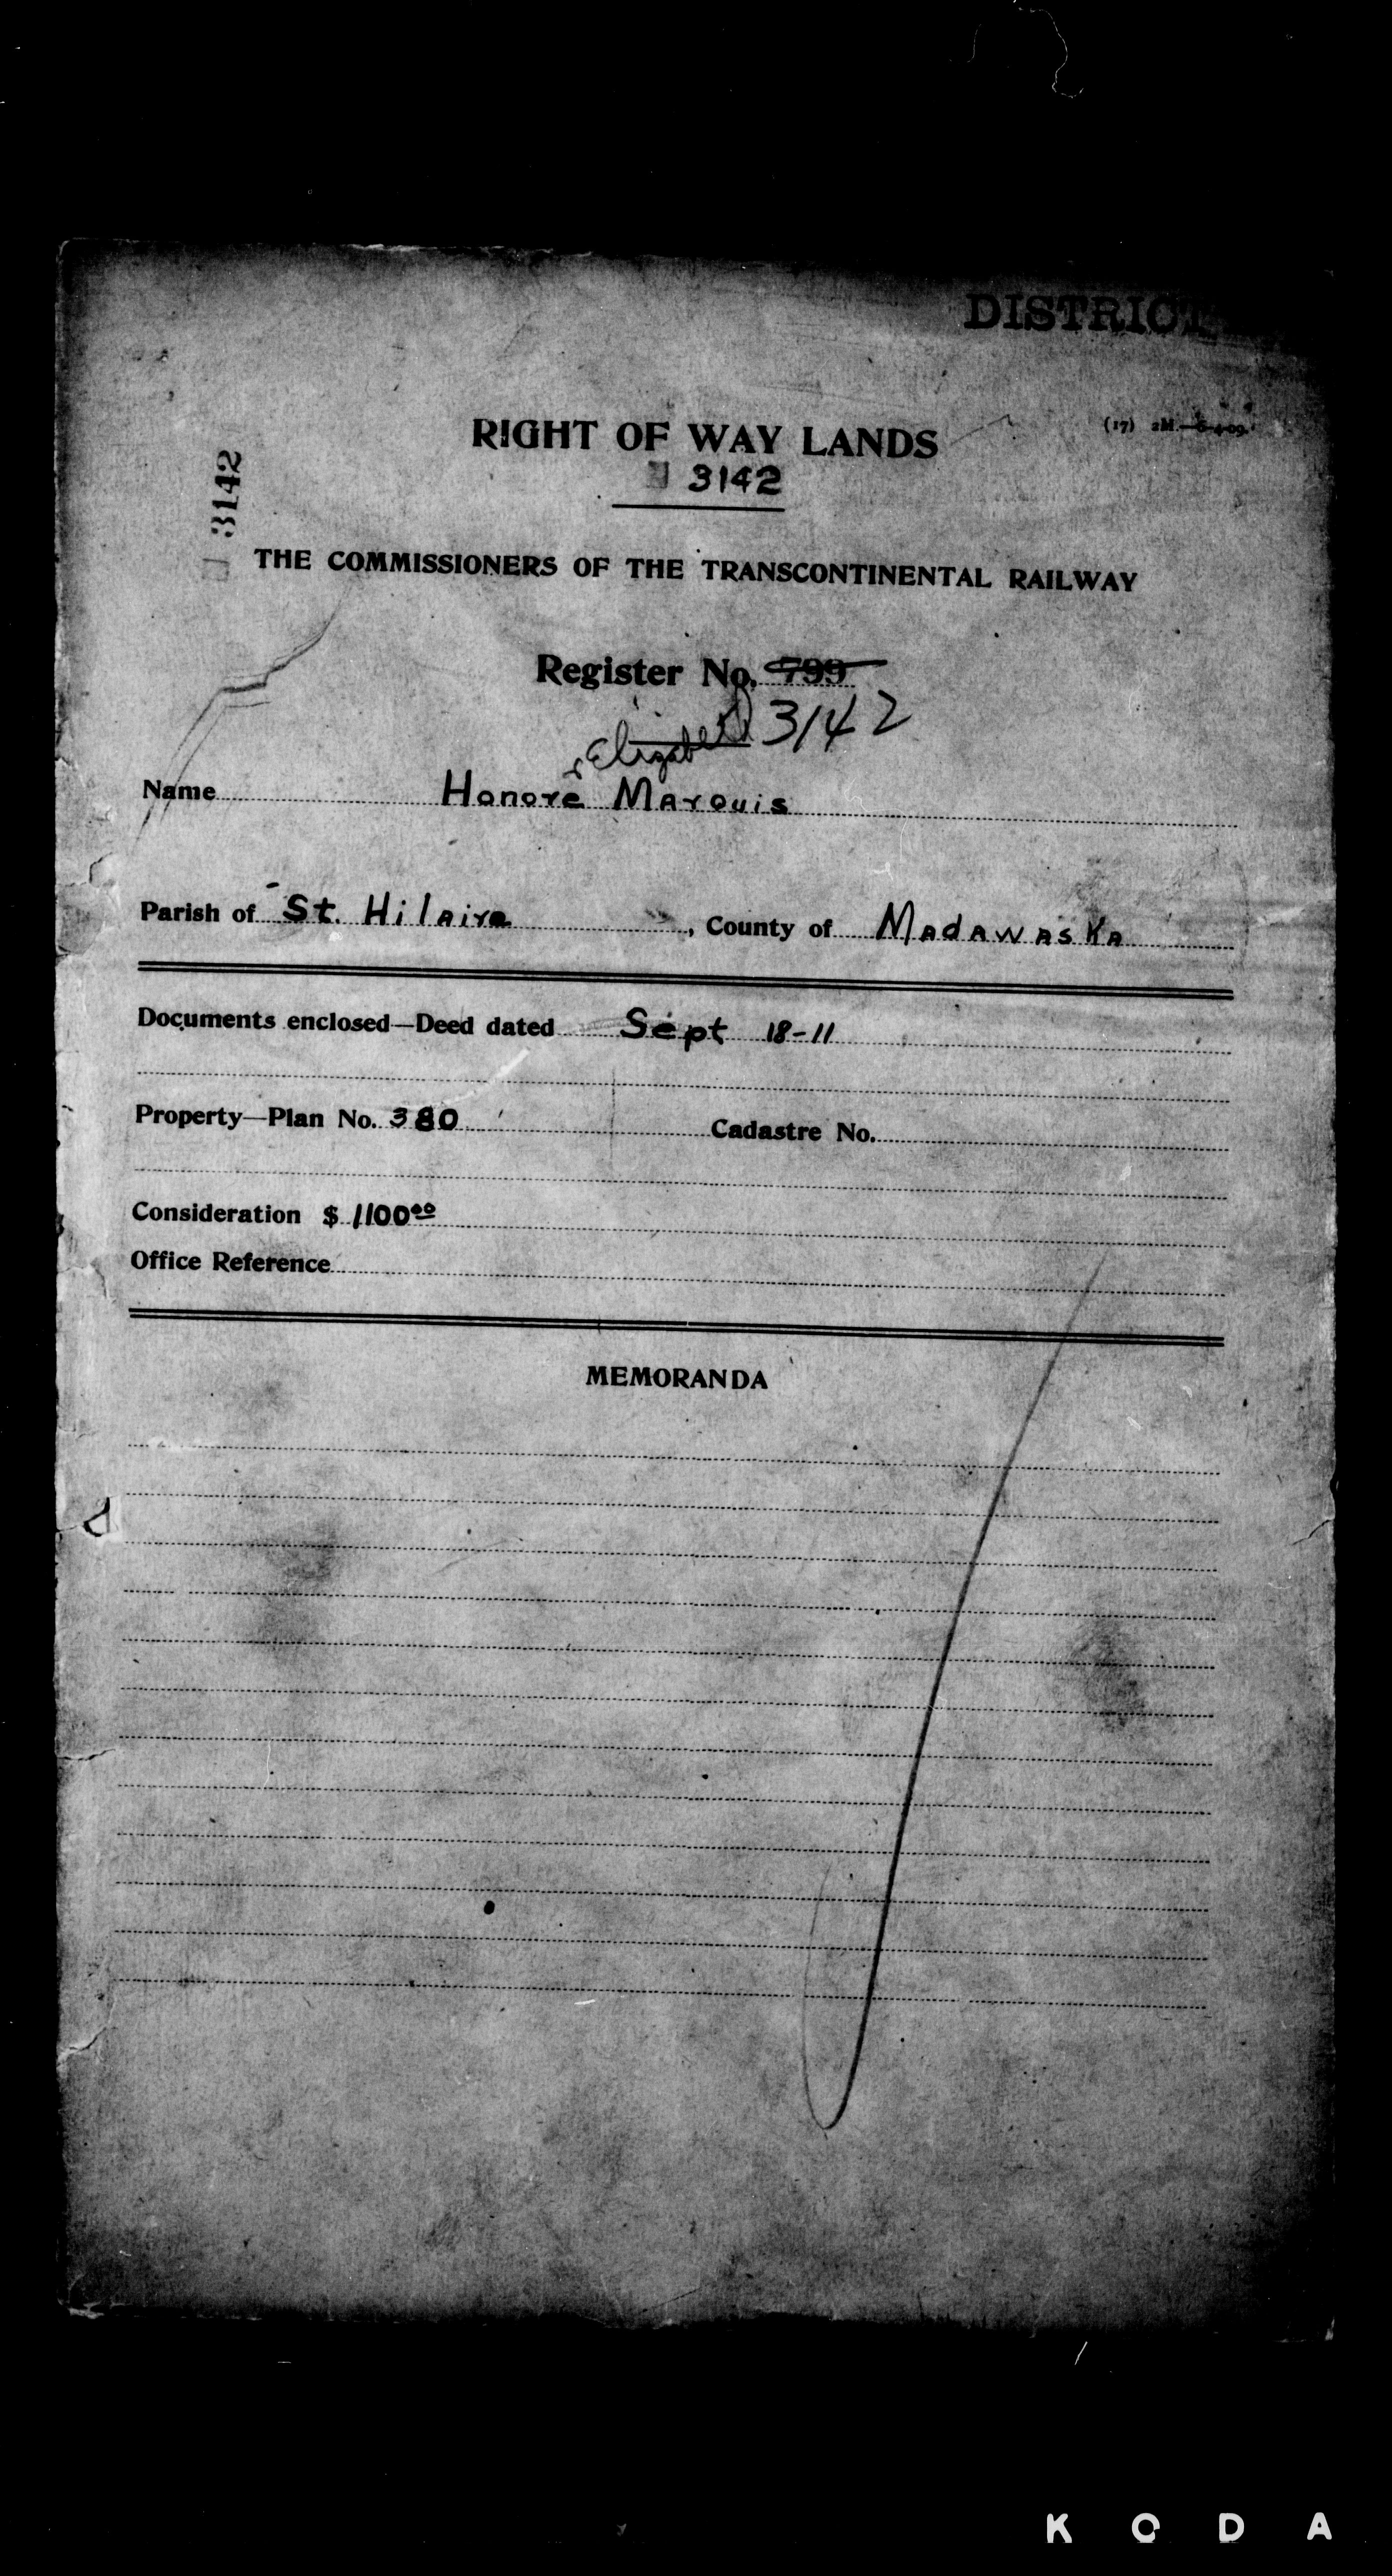 DISTRICT
RIGHT OF WAY LANDS
(17) 2M.—6-4-09.
3142
3142
THE COMMISSIONERS OF THE TRANSCONTINENTAL RAILWAY
Register No. 799
3142
& Elizabeth
Name Honoré Marquis
Parish of St. Hilaire, County of Madawaska
Documents enclosed—Deed dated Sept 18-11
Property—Plan No. 380 Cadastre No.
Consideration $ 1100 00
Office Reference
MEMORANDA
KODA